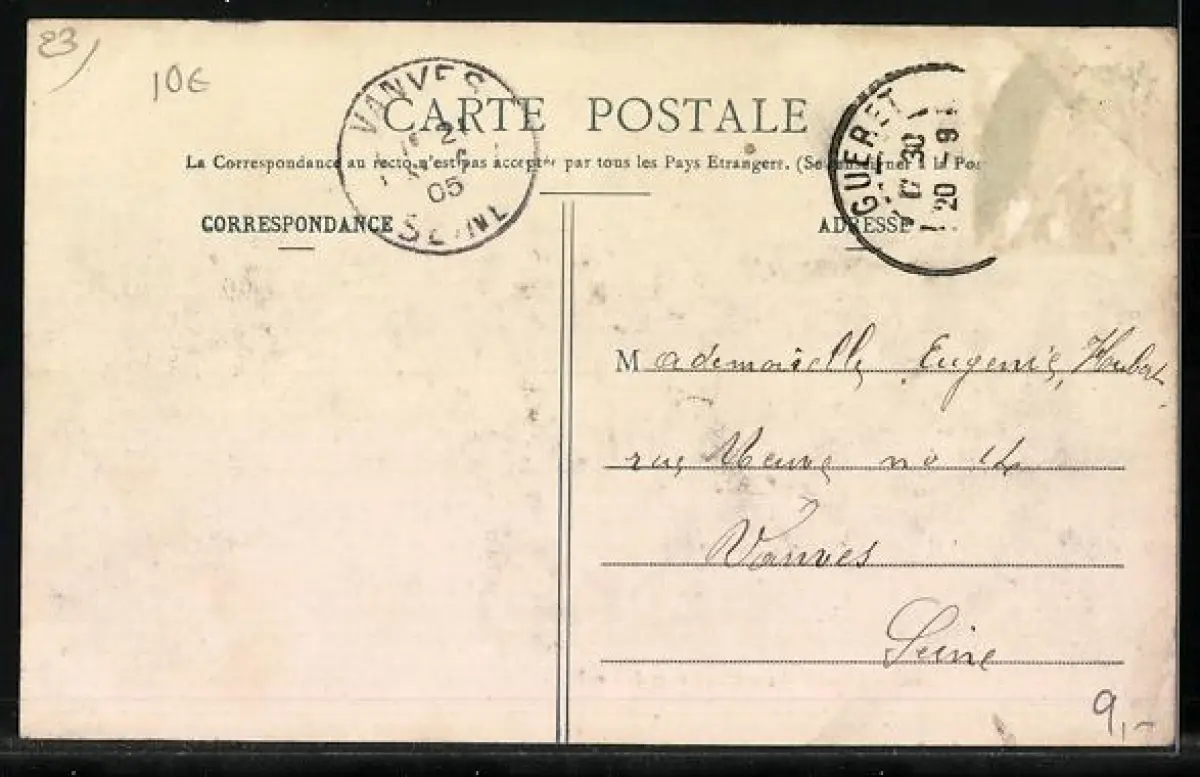 23
10€
CARTE POSTALE
La Correspondance au recto n'est pas acceptée par tous les Pays Etrangers. (Se renseigner à la Pos
CORRESPONDANCE
ADRESSE
VANVES
21
05
SEINE
GUERET
30
20 -9
Mademoiselle Eugenie Houbert
rue Neuve no 14
Vanves
Seine
9,-